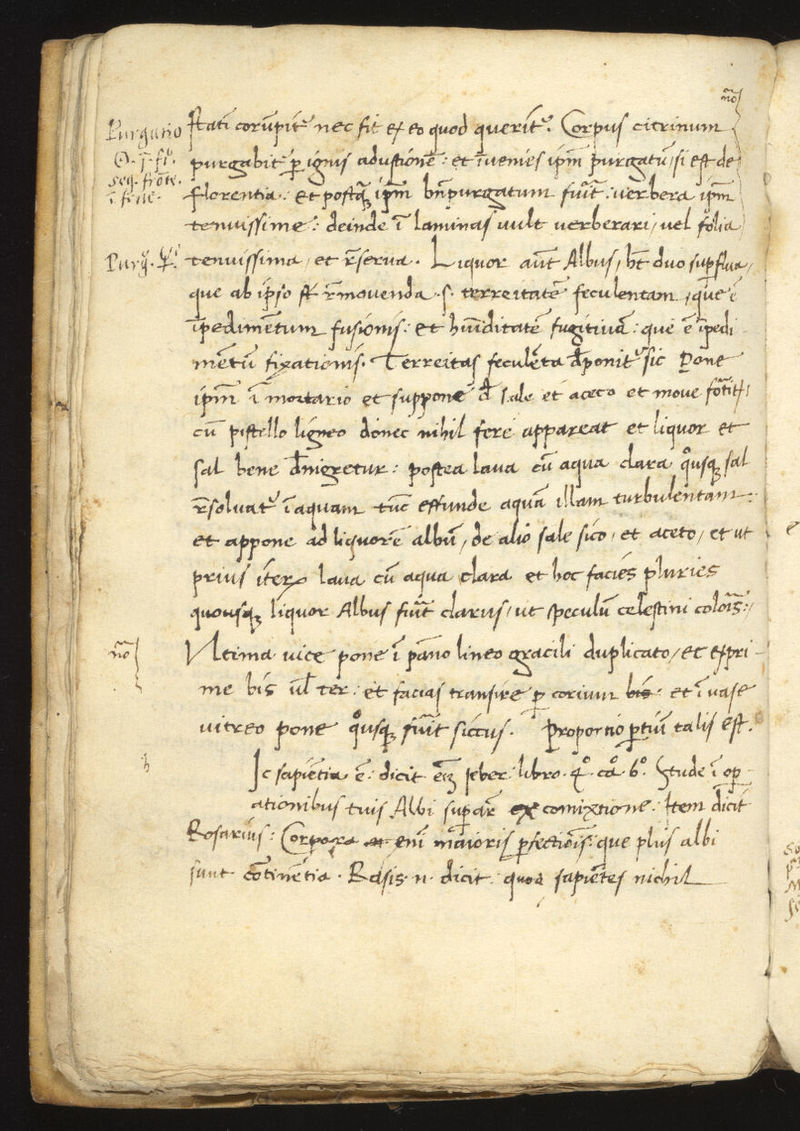 nō
Purgatio
seq. frōte.
ī fine.
ſtati corūpit᷑ nec fit ex eo quod querit᷑. Corpus citrinum
purgabit᷑ ꝑ ignis aduſtionē: et īvenies ip̄m purgatū, si eſt de
florentia: et poſtꝗ̄ ip̄m bn̄ purgatum fuīt: verbera ip̄m
tenuissime: deinde ī laminas vult verberari, vel folia
tenuissima, et r̄serva. Liquor aūt Albus, hēt duo suꝑflua,
que ab ipso sūt r̄movenda .s. terreitatē feculentam, que ē
īpedimēntum fusionis: et hūiditatē fugitivā: que ē īpedi-
mētū fixationis. Terreitas feculēta dēponit᷑ sic Pone
ip̄m ī mortario et suppone d̄ sale et aceto et move
cū piſtello ligneo donec nihil fere appareat et liquor et
sal bene dēnigretur: poſtea lava cū aqua clara qͦusqꝫ sal
r̄solvat᷑ ī aquam tūc effunde aquā illam turbulentam:
et appone ad liquorē albū, de alio sale sico, et aceto, et ut
prius iterꝝ lava cū aqua clara et hoc facies pluries
quousqꝫ liquor Albus fuīt clarus, ut speculū celestini coloīs:,
nō
Vltima vice pone ī pāno lineo gracili duplicato, et expri-
me bis ūl ter: et facias transire ꝑ corium bis et ī vase
vitreo pone qͦusqꝫ fuīt siccus. Proportio ꝑtiū talis eſt.
h
Ic sapiētia ē: dicit eīꝫ Jeber libro. 4ͦ. caͦ. 6ͦ. Stude ī oꝑ-
ationibus tuis Albi suꝑar̄ ex comixtione. Item dicit
Rosarius: Corpora enī maioris ꝑfectiōis: que plus albi
sunt cōtinētia. Rasis .n. dicit: quod sapiētes nichil